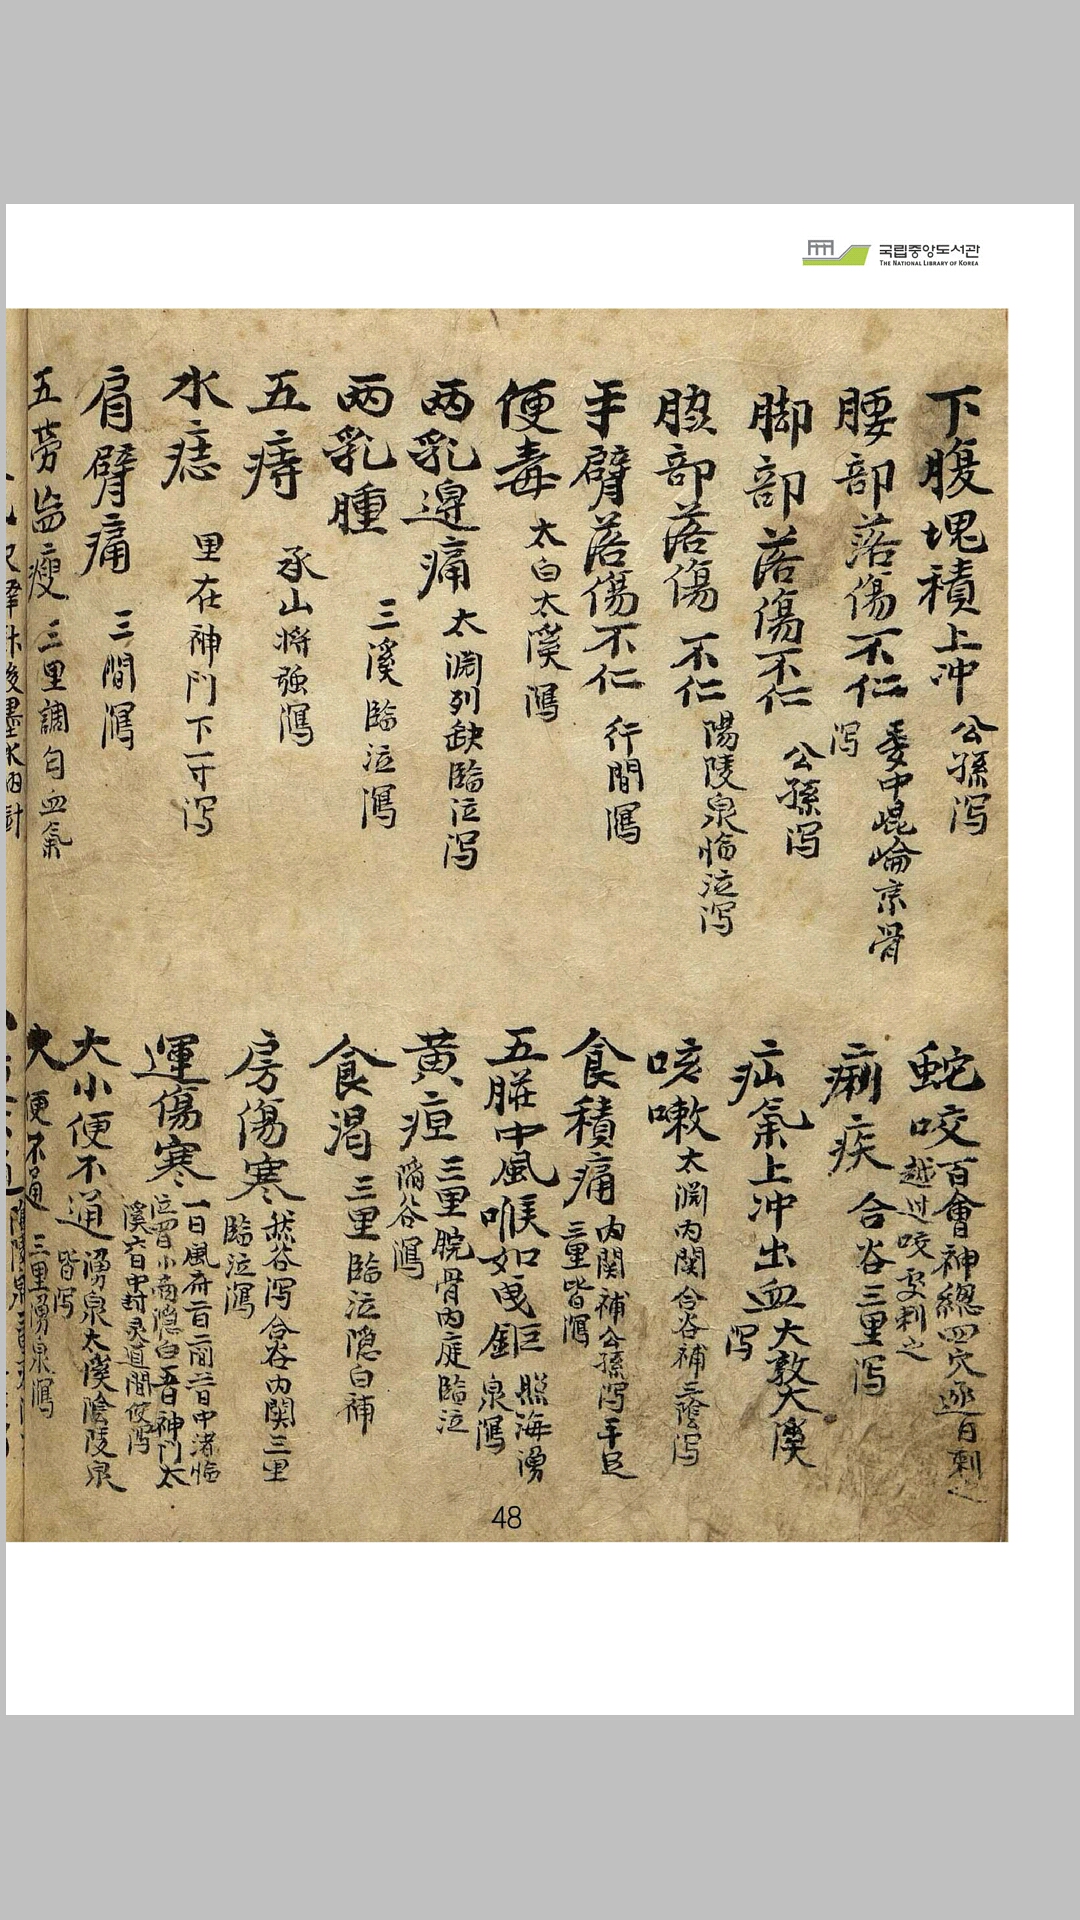 국립중앙도서관
THE NATIONAL LIBRARY OF KOREA
下腹塊積上冲 公孫泻
腰部落傷不仁 委中崐崘京骨
泻
脚部落傷不仁 公孫泻
部落傷不仁 陽陵泉临泣泻
手臂落傷不仁 行間瀉
便毒 太白太溪瀉
两乳邉痛 太渊列缺臨泣泻
两乳腫 三溪臨泣瀉
五痔 承山将强瀉
水痣 里在神门下一寸泻
肩臂痛 三間瀉
五劳 瘦 三里調匀血氣
蛇咬 百會神總四穴逐日刺之
越过咬 刺之
痢疾 合谷三里泻
疝氣上冲出血 大敦大溪
泻
咳嗽 太渊内関合谷補三陰泻
食積痛 内関補公孫泻手足
三里皆瀉
五臟中風喉如曳鉅 照海湧
泉瀉
黄疸 三里腕骨内庭臨泣
谷瀉
食渴 三里臨泣隠白補
房傷寒 然谷泻合谷内関三里
臨泣瀉
運傷寒 一日風府二百二间三日中渚临
泣四日小商隠白五日神门太
溪六日中封灵道間使泻
大小便不通 湧泉太溪陰陵泉
皆泻
大便不通 三里湧泉瀉
48